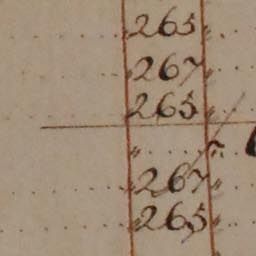 265
267
265
267
265